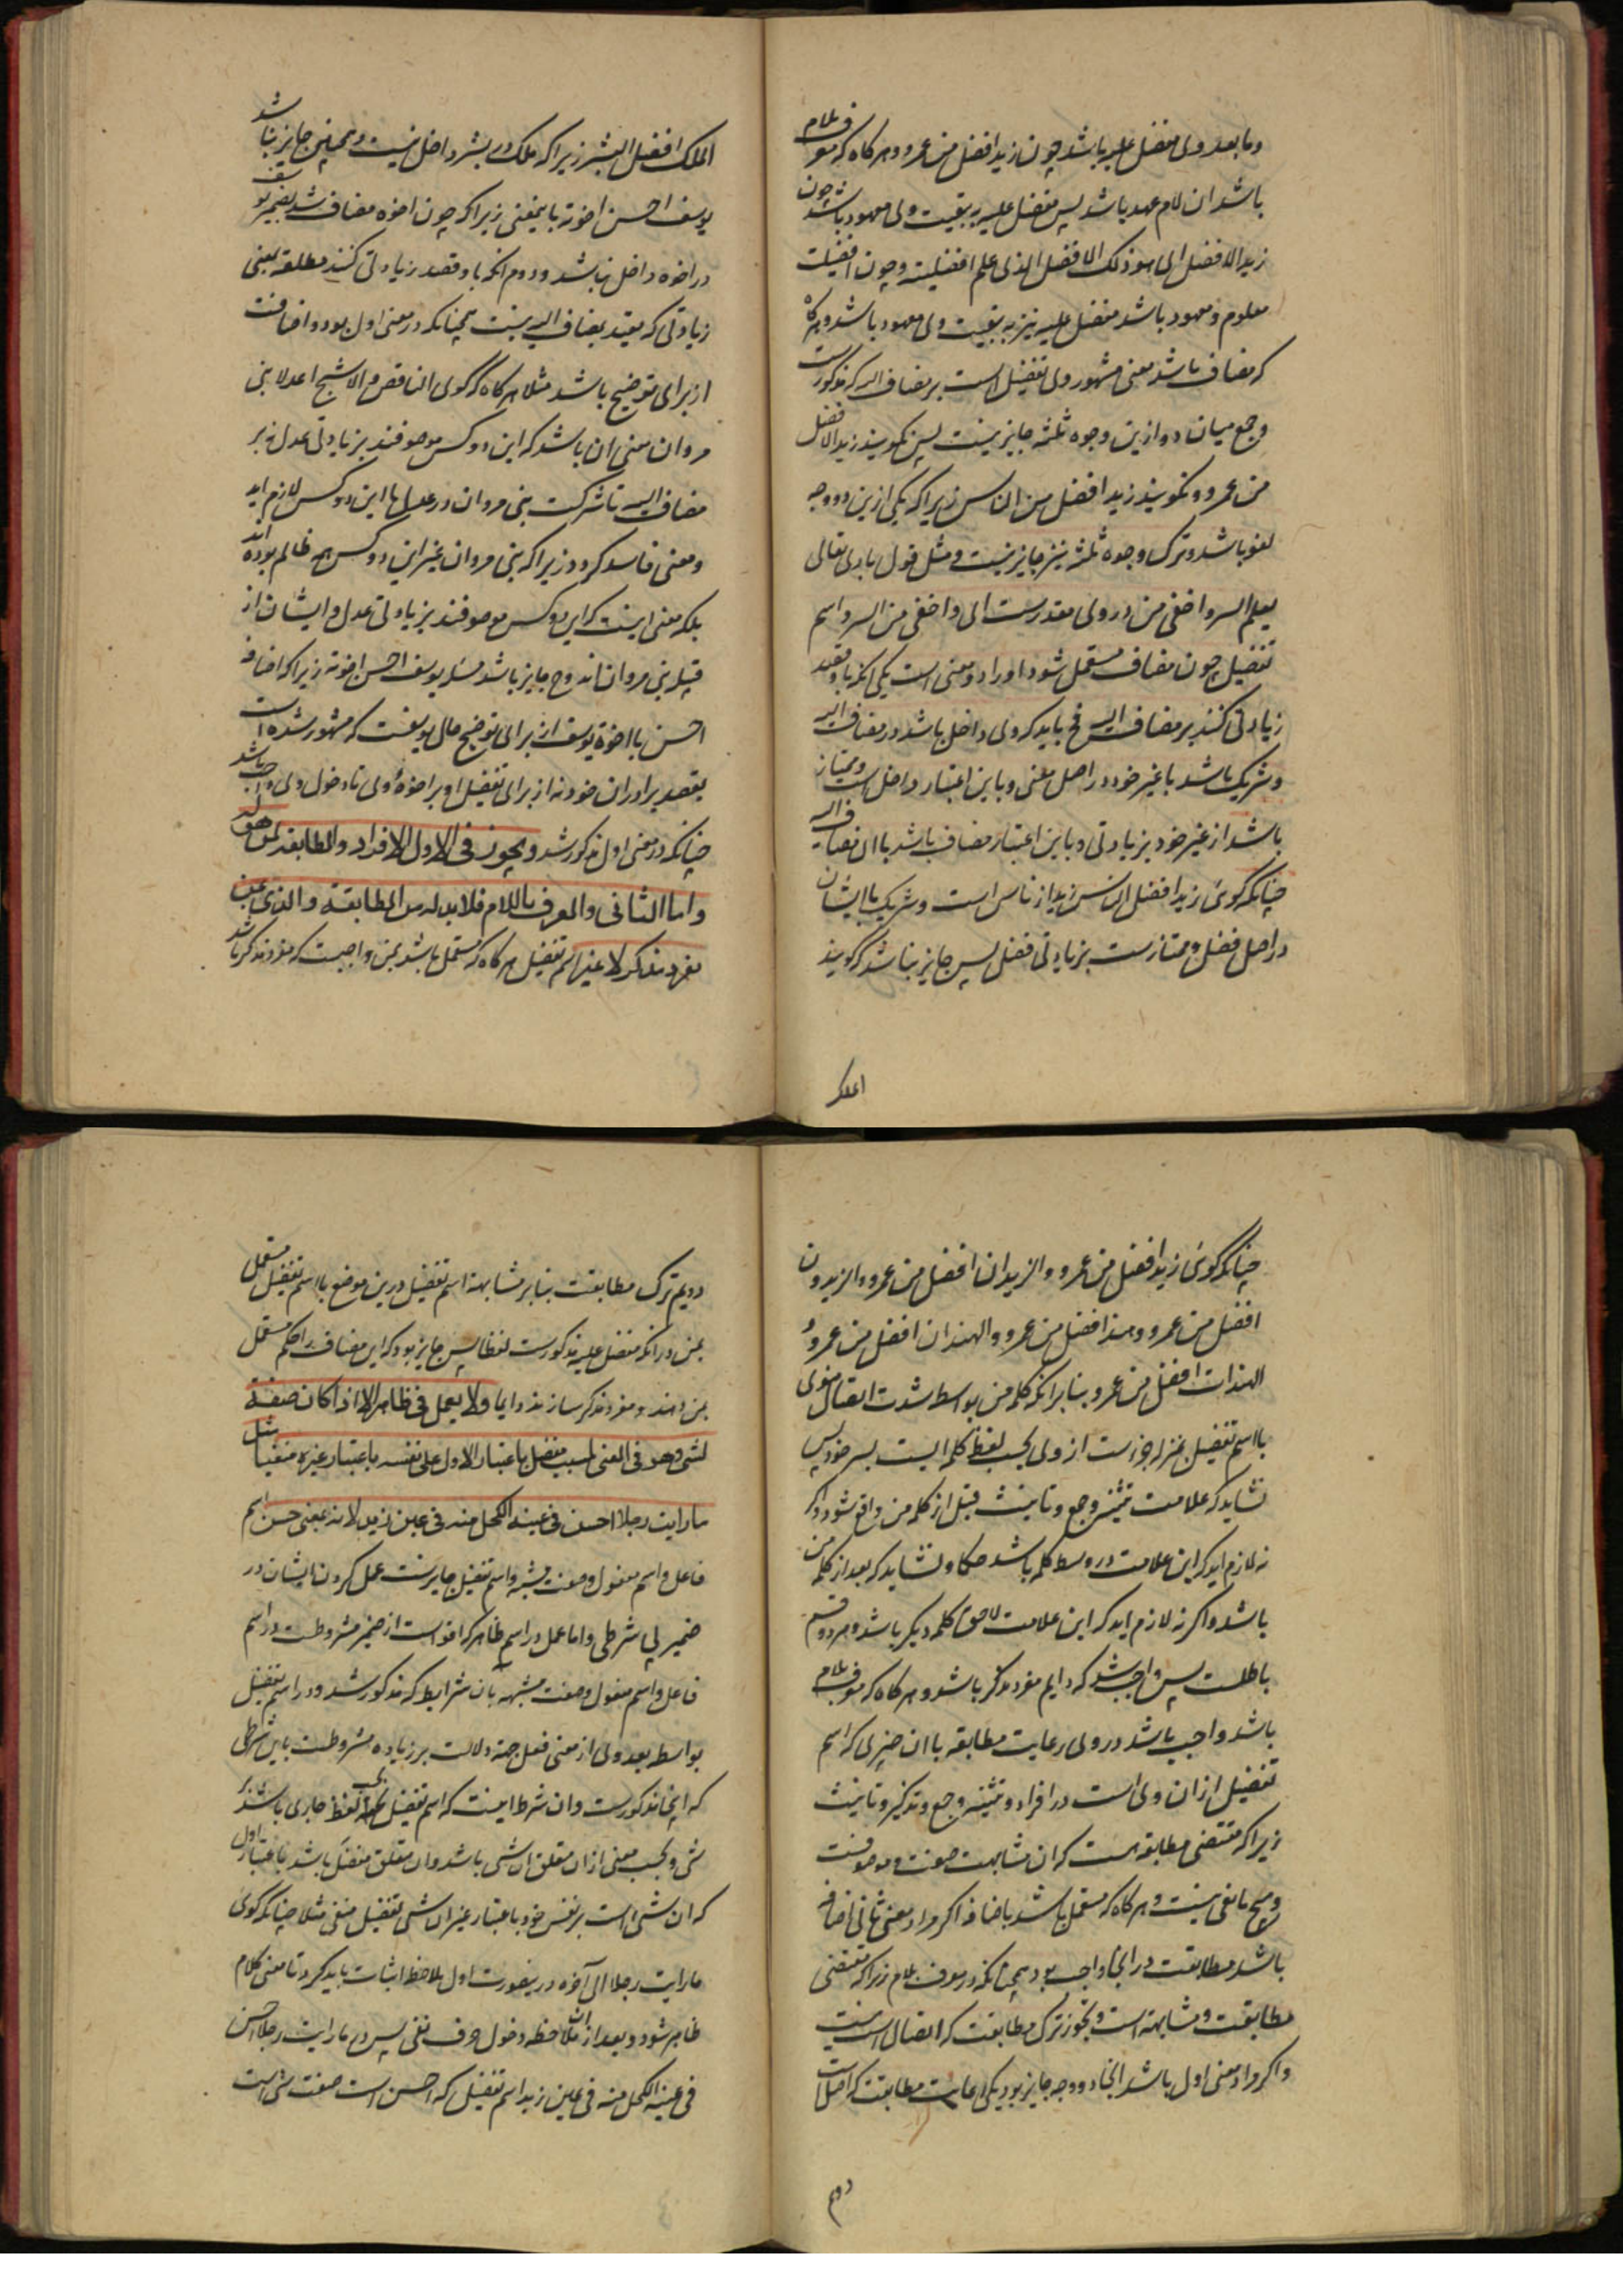 وما بعد وی مفضل علیه باشد چون زید افضل من عمرو و هر گاه که معرف بلام
باشد ان لام عهد باشد پس مفضل علیه به تبعیت وی معهود باشد چون
زید الافضل ای هو ذلک الافضل الذی علم افضلیته و چون افضلیت
معلوم و معهود باشد مفضل علیه نیز به تبعیت وی معهود باشد و هر گاه
که مضاف باشد معنی مشهور وی تفضیل است بر مضاف الیه که مذکورست
و جمع میان دو ازین وجوه ثلثه جایز نیست پس نکویند زید الافضل
من عمرو و نکویند زید افضل من الناس زیرا که یکی ازین دو وجه
لغو باشد و ترک وجوه ثلثه نیز جایز نیست و مثل قول باری تعالی
یعلم السر و اخفی من در وی مقدرست ای و اخفی من السر و اسم
تفضیل چون مضاف مستعمل شود او را دو معنی است یکی انکه باو قصد
زیادتی کنند بر مضاف الیه فح باید که وی داخل باشد در مضاف الیه
و شریک باشد با غیر خود در اصل معنی و باین اعتبار داخل است و ممتاز
باشد از غیر خود بزیادتی و باین اعتبار مضاف باشد با ان مضاف الیه
چنانکه کوئی زید افضل الناس زید از ناس است و شریک با ایشان
در اصل فضل و ممتازست بزیادتی فضل پس جایز نباشد که کویند
الملک
الملک افضل البشر زیرا که ملک در بشر داخل نیست و همچنین جایز نباشد
یوسف احسن اخوته باینمعنی زیرا که چون اخوه مضاف شد بضمیر یوسف
در اخوه داخل نباشد و دوم انکه باو قصد زیادتی کنند مطلقه یعنی
زیادتی که مقید بمضاف الیه نیست همچنانکه در معنی اول بود و اضافت
از برای توضیح باشد مثلا هر گاه که کوی الناقص و الاشج اعدلا بنی
مروان معنی ان باشد که این دو کس موصوفند بزیادتی عدل نه بر
مضاف الیه تا شرکت بنی مروان در عدل با این دو کس لازم اید
و معنی فاسد کردد زیرا که بنی مروان غیر این دو کس همه ظالم بوده اند
بلکه معنی اینست که این دو کس موصوفند بزیادتی عدل و ایشان از
قبیله بنی مروان اند و ح جایز باشد مثل یوسف احسن اخوته زیرا که اضافه
احسن با اخوة یوسف از برای توضیح حال یوسفست که مشهور شده است
بقصد برادران خود نه از برای تفضیل او بر اخوهٔ وی تا دخول وی واجب باشد
چنانکه در معنی اول مذکور شد و یجوز فی الاول الافراد و المطابقه لمن هو له
و اما الثانی و المعرف باللام فلا بد له من المطابقة و الذی بمن
مفرد مذکر لا غیر اسم تفضیل هر گاه که مستعمل باشد بمن واجبست که مفرد مذکر باشد
چنانکه کوئی زید افضل من عمرو و الزیدان افضل من عمرو و الزیدون
افضل من عمرو و هند افضل من عمرو و الهندان افضل من عمرو و
الهندات افضل من عمرو بنا بر انکه کلمه من بواسطه شدت اتصال معنوی
با اسم تفضیل بمنزله جزء است از وی بحسب لفظ کلمه ایست بسر خود پس
نشاید که علامت تثنیه و جمع و تانیث قبل از کلمه من واقع شود و اکر
نه لازم اید که این علامت در وسط کلمه باشد حکما و نشاید که بعد از کلمه من
باشد و اکر نه لازم اید که این علامت لاحق کلمه دیکر باشد و هر دو قسم
باطلست پس واجب شد که دایم مفرد مذکر باشد و هر گاه که معرف بلام
باشد واجب باشد در وی رعایت مطابقه با ان چیزی که اسم
تفضیل از ان وی است در افراد و تثنیه و جمع و تذکیر و تانیث
زیرا که مقتضی مطابقه هست که ان مشابهت صفت و موصوفست
و هیچ مانعی نیست و هر گاه که مستعمل باشد باضافه اکر مراد معنی ثانی اضافه
باشد مطابقت در اینجا واجب بود همچنانکه در معرف بلام زیرا که مقتضی
مطابقت و مشابهة است و مجوز ترک مطابقت که اتصال است نیست
و اکر مراد معنی اول باشد اینجا دو وجه جایز بود یکی رعایت مطابقت که اصل است
دویم
دویم ترک مطابقت بنا بر مشابهة اسم تفضیل درین موضع با اسم تفضیل مستعمل
بمن در انکه مفضل علیه مذکورست لفظا پس جایز بود که این مضاف را حکم مستعمل
بمن دهند و مفرد مذکر سازند دایما و لا یعمل فی ظاهر الا اذا کان صفة
لشئ و هو فی المعنی لمسبب مفضل باعتبار الاول علی نفسه باعتبار غیره منفیا مثل
ما رایت رجلا احسن فی عینه الکحل منه فی عین زید لانه بمعنی حسن اسم
فاعل و اسم مفعول و صفت مشبه و اسم تفضیل جایزست عمل کردن ایشان در
ضمیر بی شرطی و اما عمل در اسم ظاهر که اقوا است از ضمیر مشروطست در اسم
فاعل و اسم مفعول و صفت مشبهه بان شرایط که مذکور شد و در اسم تفضیل
بواسطه بعد وی از معنی فعل جهة دلالت بر زیاده مشروطست باین شرطی
که اینجا مذکورست و ان شرط اینست که اسم تفضیل بحسب لفظ جاری باشد بر
شئ و بحسب معنی از ان متعلق ان شئ باشد و ان متعلق مفضل باشد باعتبار اول
که ان شئ است بر نفس خود باعتبار غیر ان شئ تفضیل منفی مثلا چنانکه کوئی
ما رایت رجلا الی آخره در ینصورت اول ملاحظه اثبات باید کرد تا معنی کلام
ظاهر شود و بعد از ان ملاحظه دخول حرف نفی پس در ما رایت رجلا احسن
فی عینه الکحل منه فی عین زید اسم تفضیل که احسن است صفت شئ است